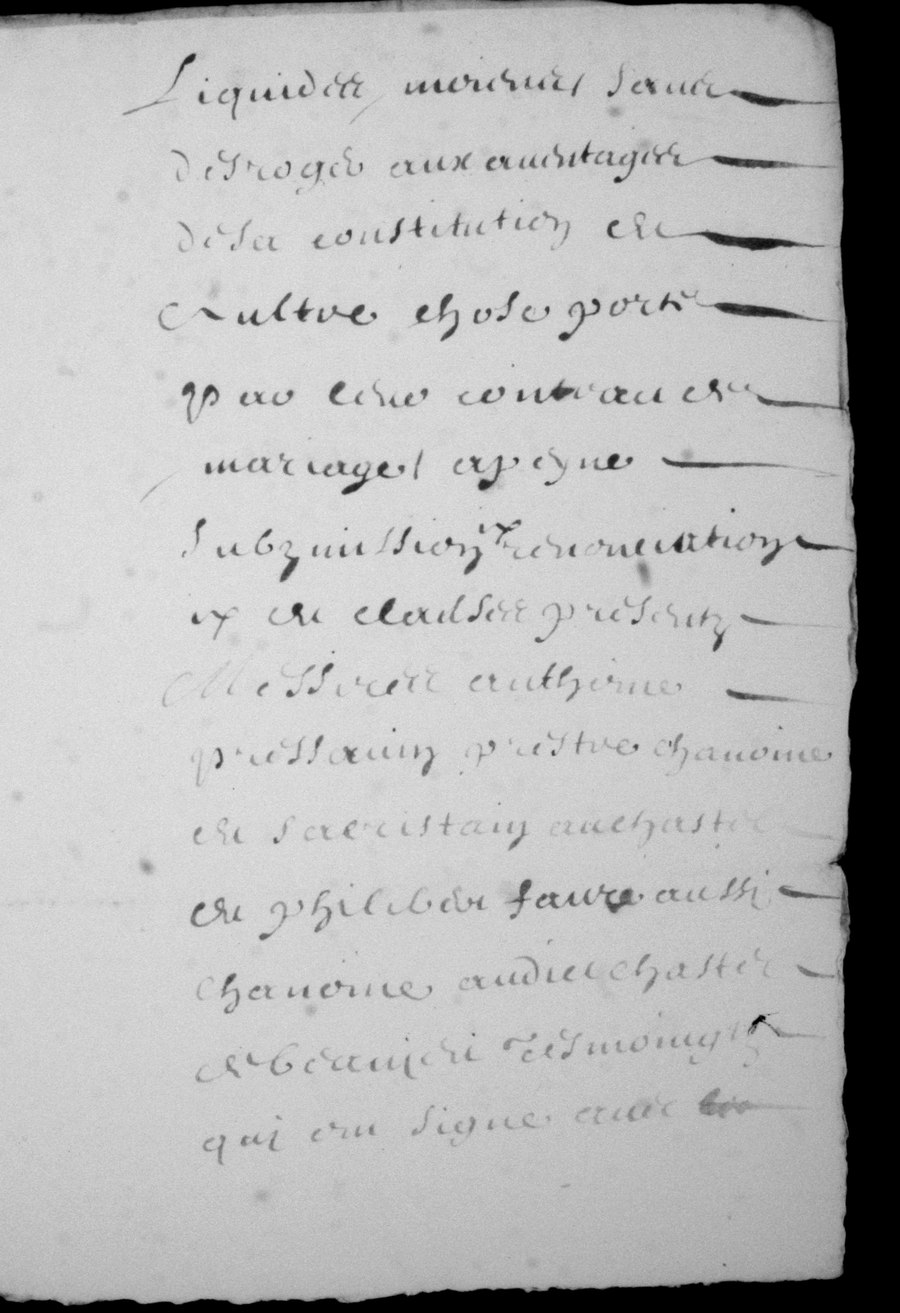 Liquidées moienes sans
desroger aux auentages
de sa constitution et
Aultre chose porte
par leur contrau de
mariage apeyne
Submission renonciation
et clauses presentz
Messires anthoine
pressauin prestre chanoine
et sacristain au chaste
et philiber faure aussi
chanoine audict chaste
de beaujeu tesmoingtz
qui ont signe auec